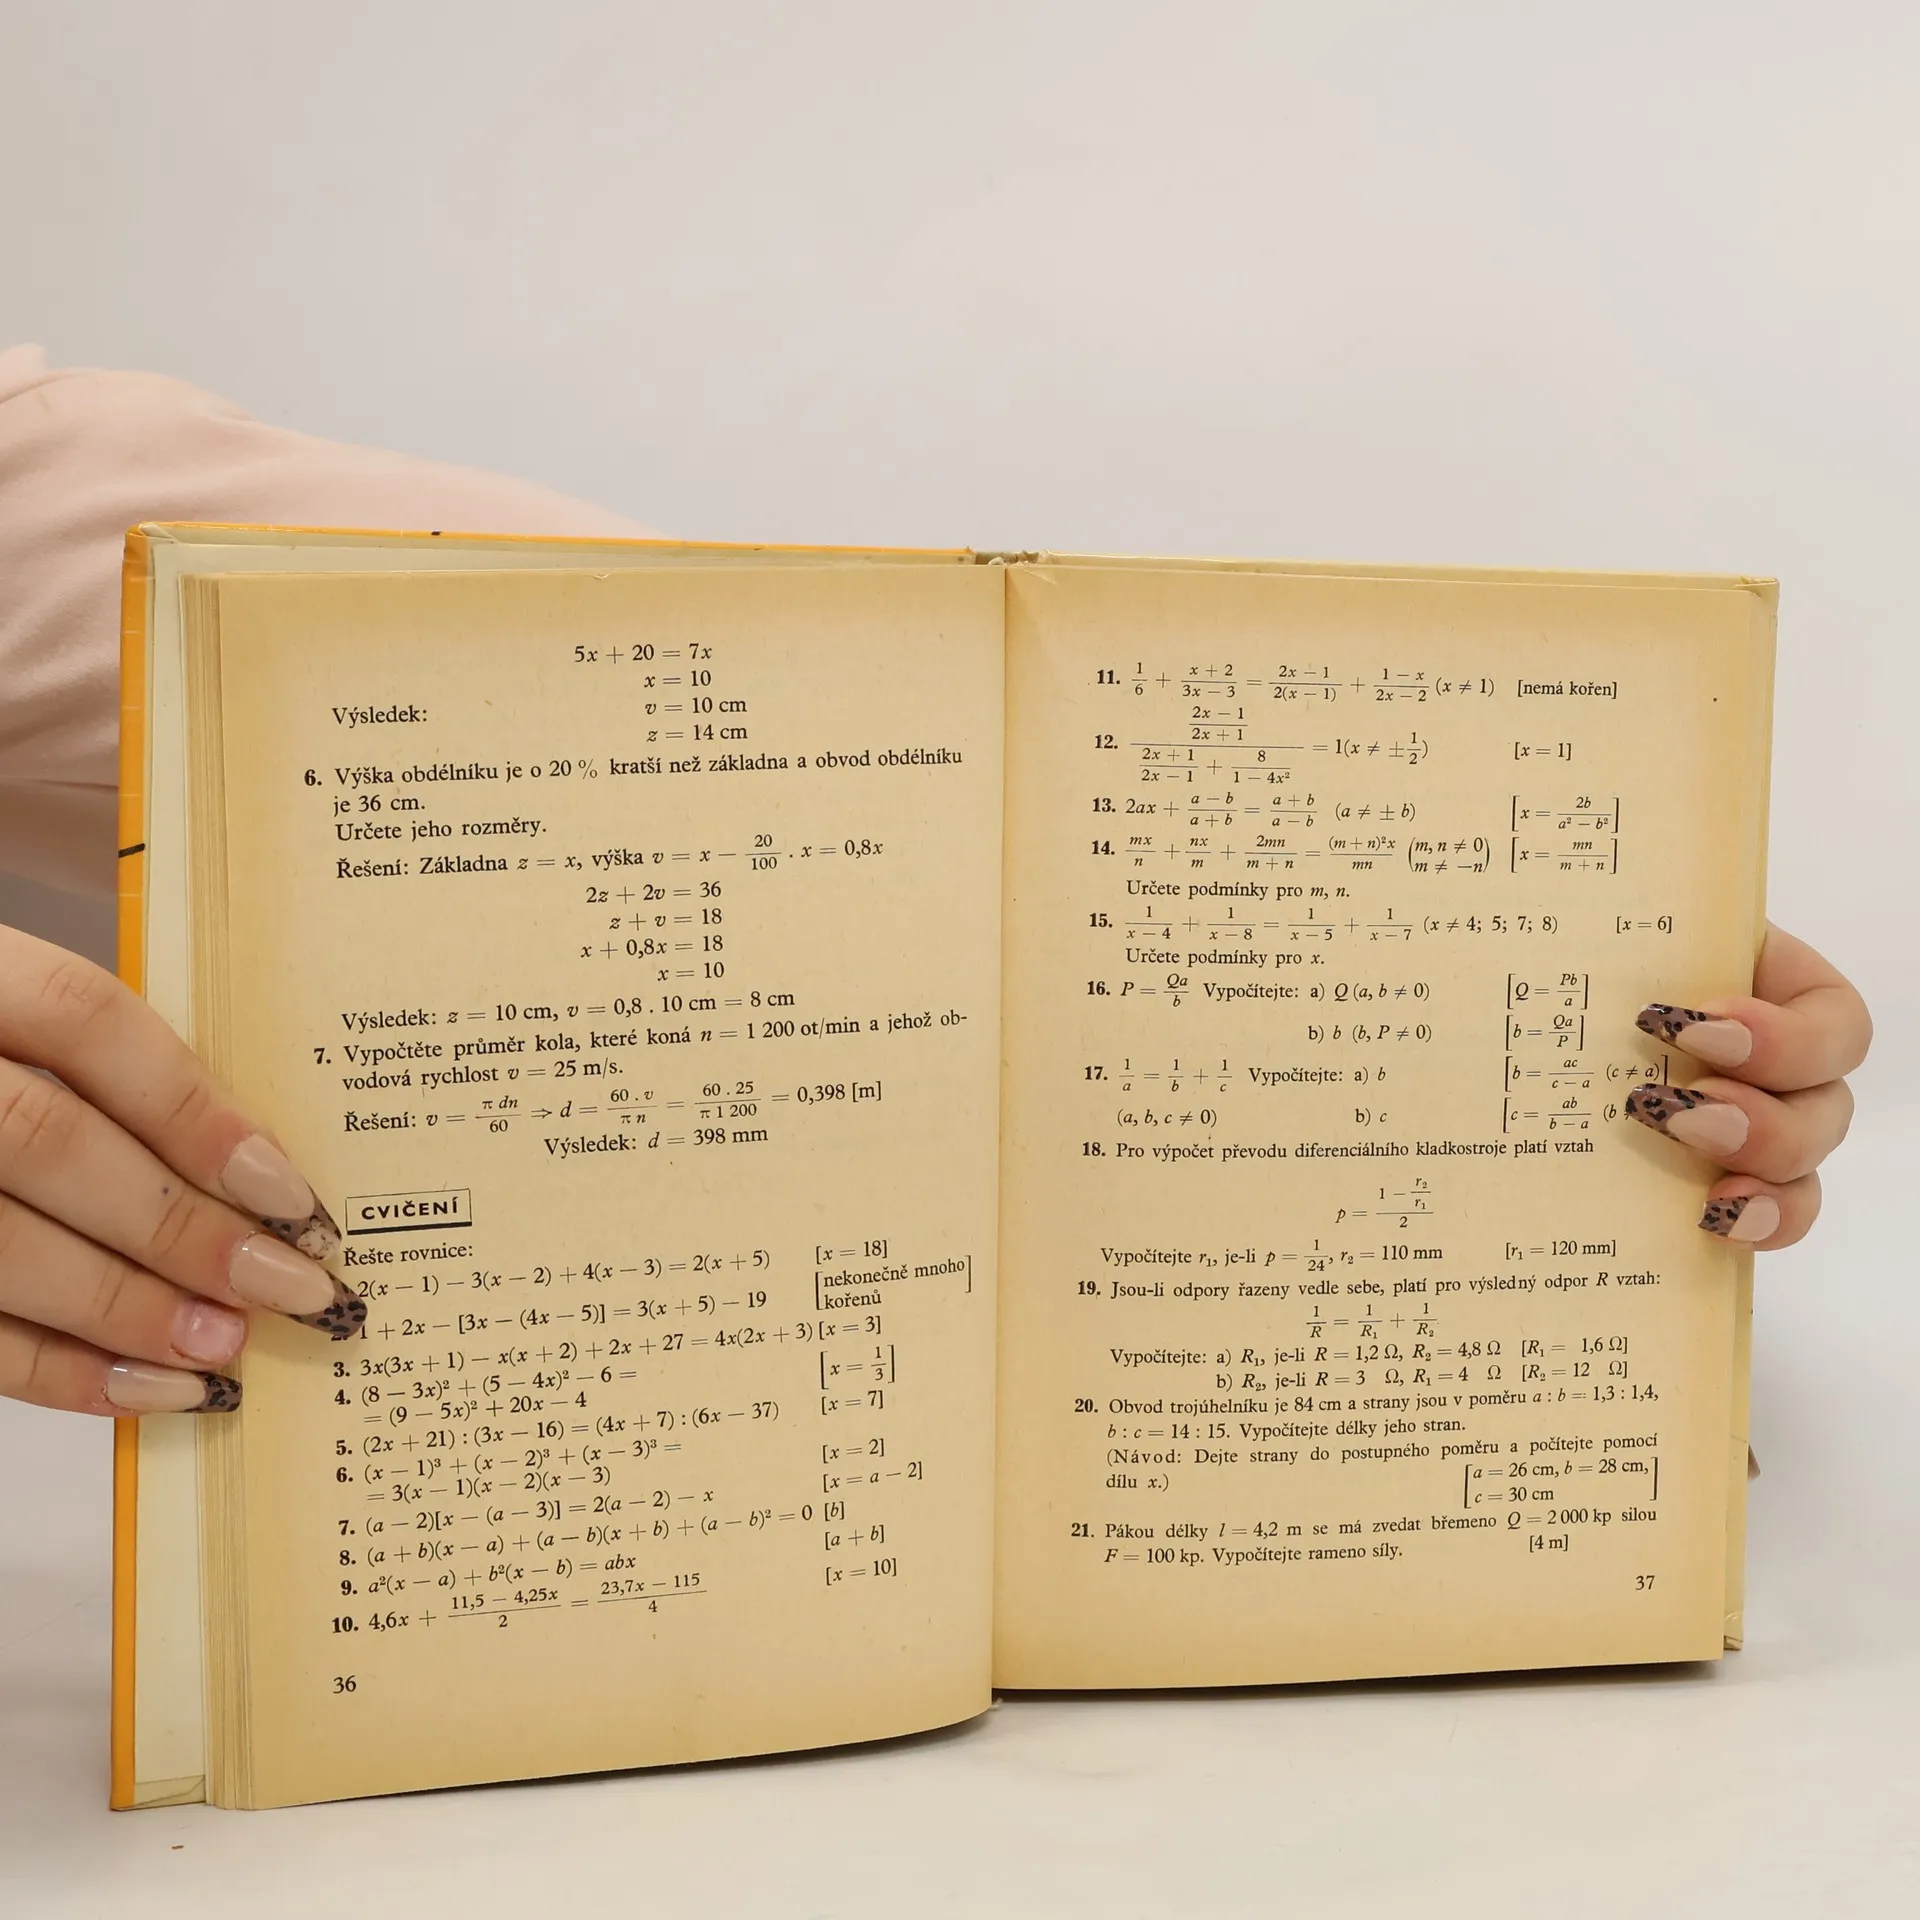 5x + 20 = 7x
x = 10
Výsledek: v = 10 cm
z = 14 cm
6. Výška obdélníku je o 20 % kratší než základna a obvod obdélníku
je 36 cm.
Určete jeho rozměry.
Řešení: Základna z = x, výška v = x − 20/100 . x = 0,8x
2z + 2v = 36
z + v = 18
x + 0,8x = 18
x = 10
Výsledek: z = 10 cm, v = 0,8 . 10 cm = 8 cm
7. Vypočtěte průměr kola, které koná n = 1 200 ot/min a jehož ob-
vodová rychlost v = 25 m/s.
Řešení: v = π dn/60 ⇒ d = 60 . v/π n = 60 . 25/π 1 200 = 0,398 [m]
Výsledek: d = 398 mm
CVIČENÍ
Řešte rovnice:
2(x − 1) − 3(x − 2) + 4(x − 3) = 2(x + 5) [x = 18]
2. 1 + 2x − [3x − (4x − 5)] = 3(x + 5) − 19 [nekonečně mnoho
kořenů]
3. 3x(3x + 1) − x(x + 2) + 2x + 27 = 4x(2x + 3) [x = 3]
4. (8 − 3x)² + (5 − 4x)² − 6 =
= (9 − 5x)² + 20x − 4 [x = 1/3]
5. (2x + 21) : (3x − 16) = (4x + 7) : (6x − 37) [x = 7]
6. (x − 1)³ + (x − 2)³ + (x − 3)³ =
= 3(x − 1)(x − 2)(x − 3) [x = 2]
7. (a − 2)[x − (a − 3)] = 2(a − 2) − x [x = a − 2]
8. (a + b)(x − a) + (a − b)(x + b) + (a − b)² = 0 [b]
9. a²(x − a) + b²(x − b) = abx [a + b]
10. 4,6x + 11,5 − 4,25x/2 = 23,7x − 115/4 [x = 10]
36
11. 1/6 + x + 2/3x − 3 = 2x − 1/2(x − 1) + 1 − x/2x − 2 (x ≠ 1) [nemá kořen]
12. 2x − 1/2x + 1 / 2x + 1/2x − 1 + 8/1 − 4x² = 1(x ≠ ±1/2) [x = 1]
13. 2ax + a − b/a + b = a + b/a − b (a ≠ ± b) [x = 2b/a² − b²]
14. mx/n + nx/m + 2mn/m + n = (m + n)²x/mn (m, n ≠ 0 m ≠ −n) [x = mn/m + n]
Určete podmínky pro m, n.
15. 1/x − 4 + 1/x − 8 = 1/x − 5 + 1/x − 7 (x ≠ 4; 5; 7; 8) [x = 6]
Určete podmínky pro x.
16. P = Qa/b Vypočítejte: a) Q (a, b ≠ 0) [Q = Pb/a]
b) b (b, P ≠ 0) [b = Qa/P]
17. 1/a = 1/b + 1/c Vypočítejte: a) b [b = ac/c − a (c ≠ a)]
(a, b, c ≠ 0) b) c [c = ab/b − a (b
18. Pro výpočet převodu diferenciálního kladkostroje platí vztah
p = 1 − r₂/r₁ / 2
Vypočítejte r₁, je-li p = 1/24, r₂ = 110 mm [r₁ = 120 mm]
19. Jsou-li odpory řazeny vedle sebe, platí pro výsledný odpor R vztah:
1/R = 1/R₁ + 1/R₂
Vypočítejte: a) R₁, je-li R = 1,2 Ω, R₂ = 4,8 Ω [R₁ = 1,6 Ω]
b) R₂, je-li R = 3 Ω, R₁ = 4 Ω [R₂ = 12 Ω]
20. Obvod trojúhelníku je 84 cm a strany jsou v poměru a : b = 1,3 : 1,4,
b : c = 14 : 15. Vypočítejte délky jeho stran.
(Návod: Dejte strany do postupného poměru a počítejte pomocí
dílu x.) [a = 26 cm, b = 28 cm,
c = 30 cm]
21. Pákou délky l = 4,2 m se má zvedat břemeno Q = 2 000 kp silou
F = 100 kp. Vypočítejte rameno síly. [4 m]
37